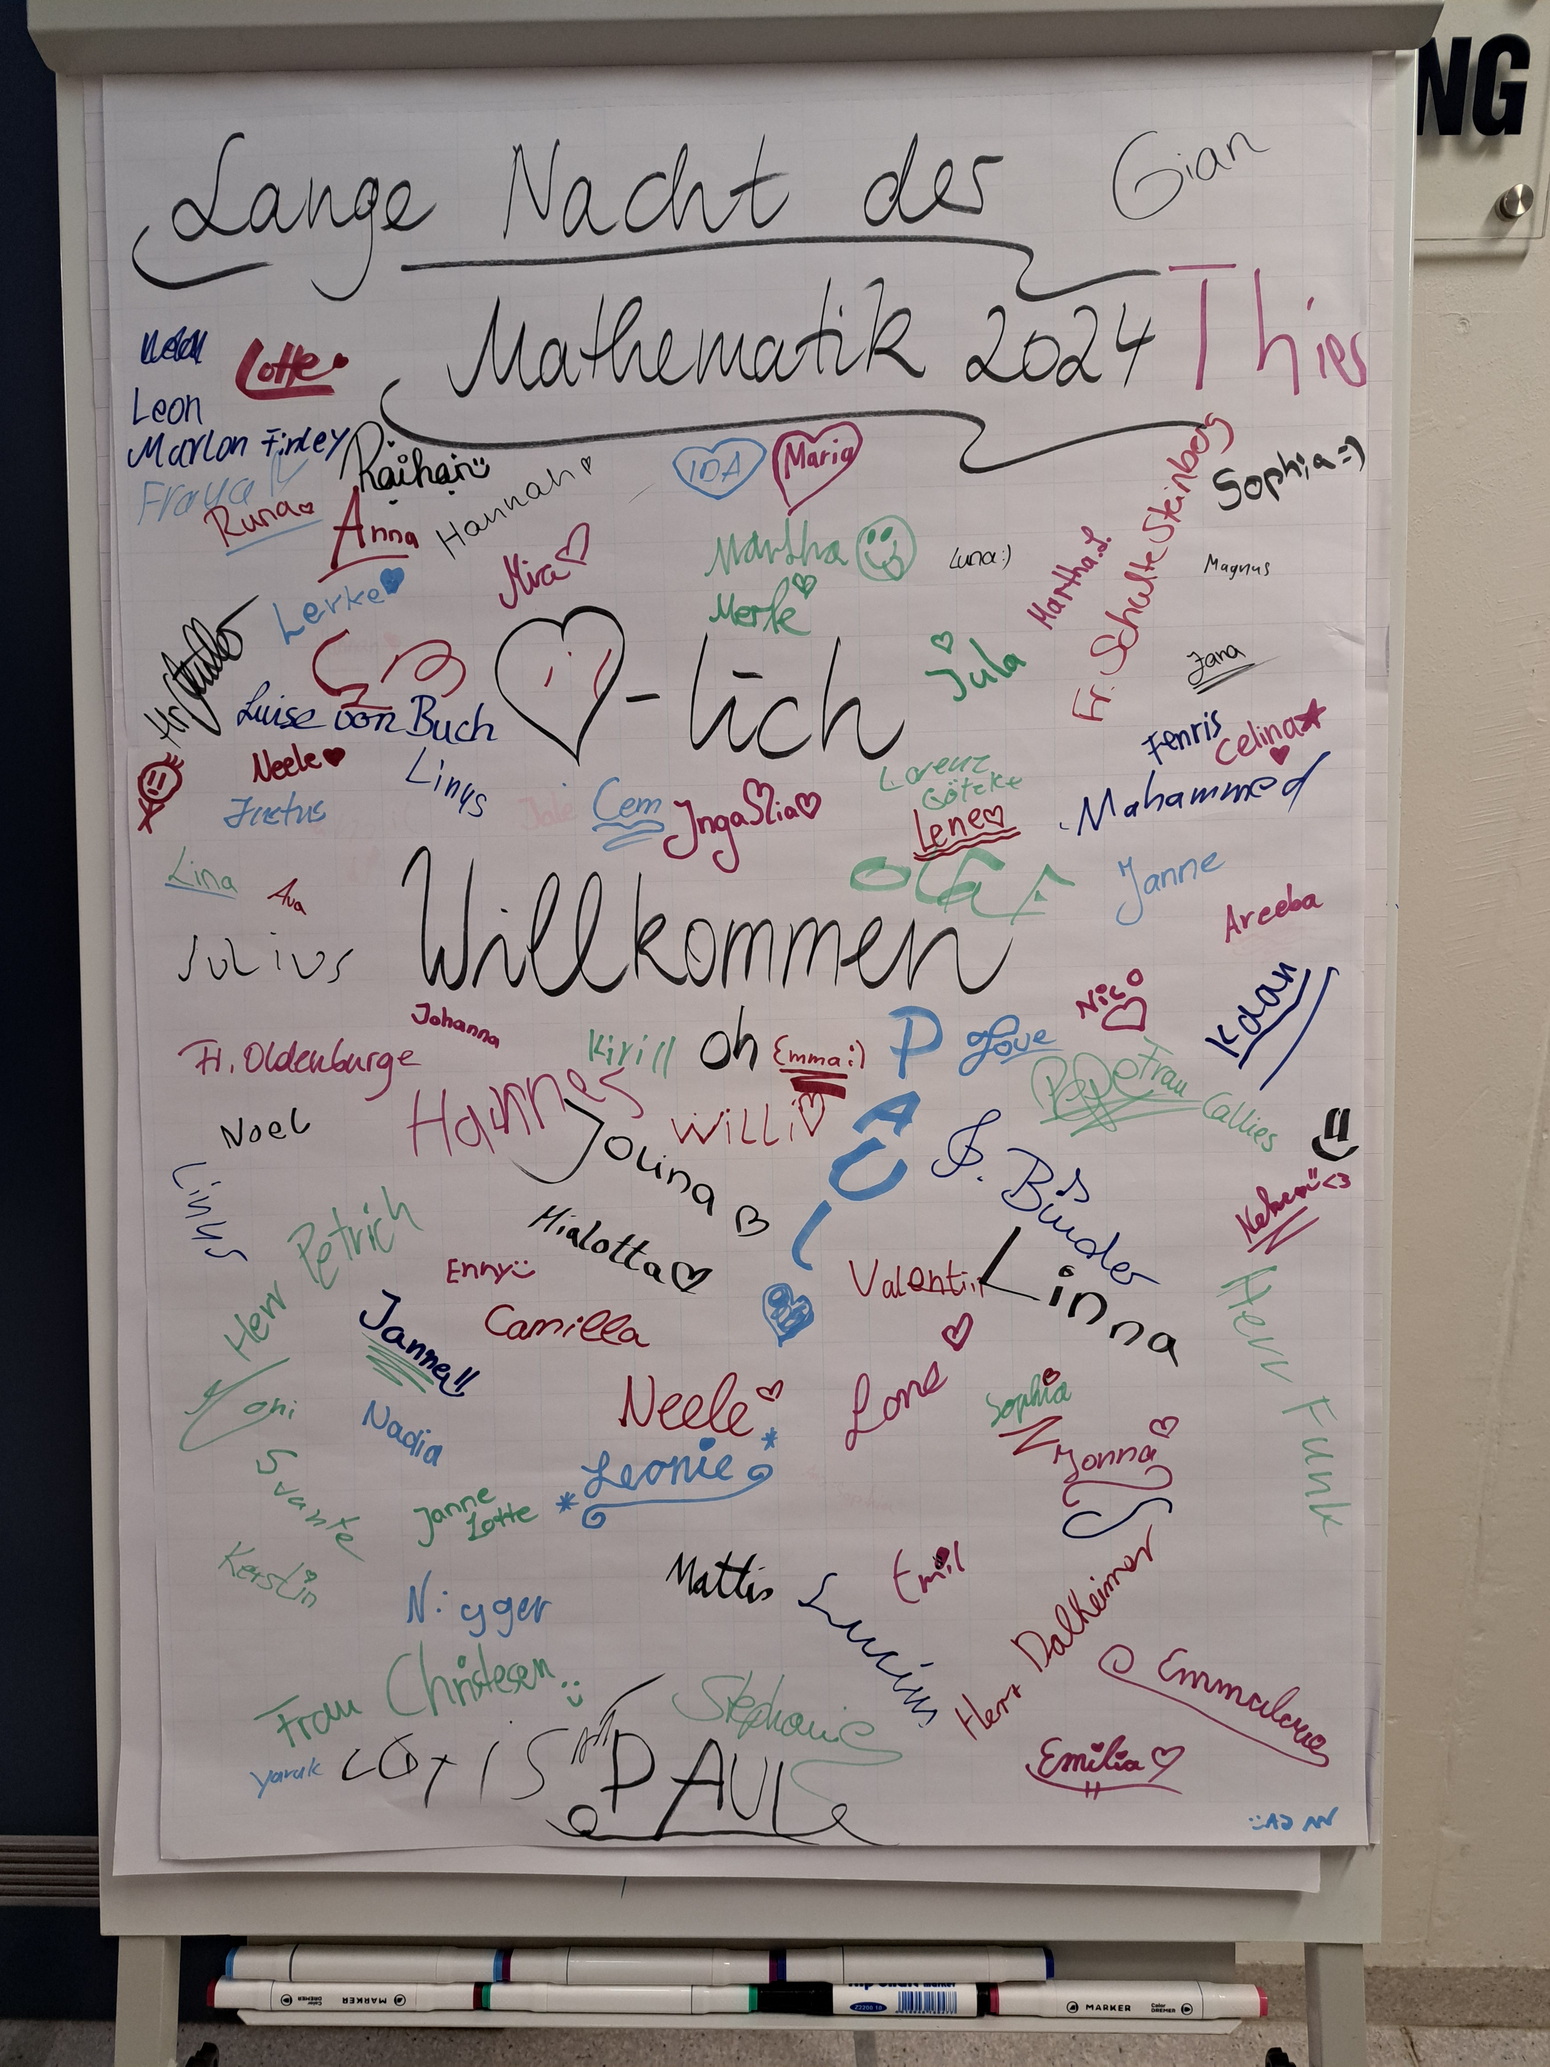 NG
Lange Nacht der
Gian
Mathematik 2024
Thies
Lotte
Leon
Marlon Finley
Raihan
IDA
Maria
Sophia :)
Runa
Anna
Hannah
Mira
Martha
Luna :)
Martha.L.
Fr. Schulte Steinberg
Magnus
Lerke
Merle
♡-lich
Jula
Jana
Luise von Buch
Fenris
Celina
Neele
Linus
Justus
Cem
Inga
Mia
Lorenz
Götzke
Lene
Mahammed
Lina
Ava
OLE
Janne
Areeba
Julius
Willkommen
Nico
Kaan
Johanna
Fr. Oldenburge
Kirill
oh
Emma :)
P
A
U
L
Love
Pepe
Frau Callies
Hannes
Noel
Jolina
Willi
S. Binder
Linus
Herr Petrich
Mialotta
Enny
Valentin
Linna
Kerem <3
Camilla
Janne
Herr Funk
Toni
Nadia
Neele
Lone
Sophia
Jonna
Leonie
Svante
Janne
Lotte
Kerstin
Mattis
Emil
Lucius
Nigger
Herr Dalkeimer
Frau Christesen
Stephanie
Emmalene
Yaruk
PAUL
Emilia
MARKER
MARKER